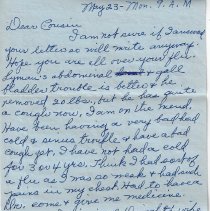 May 23 - Mon. 9. A.M
Dear Cousin
I am not sure if I answered
your letter so will write anyway.
Hope you are all over your flu.
Lyman's abdominal & gall
bladder trouble is better & he
removed 20 lbs. but he has quite
a cough now, I am on the mend.
Have been having a very bad head
cold & sinus trouble & have a bad
cough yet. I have not had a cold
for 3 or 4 yrs. Think I had sort of
a flu. I was so weak & had such
pains in my chest. Had to have
Dr. come & give me medicine.